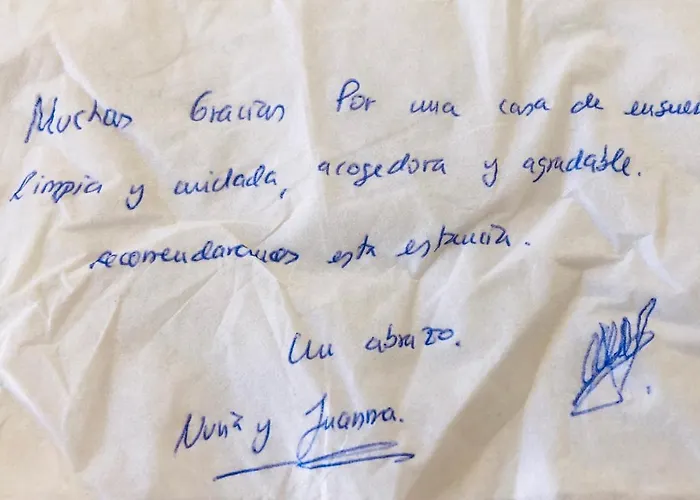 Muchas Gracias Por una casa de ensueñ
limpia y cuidada, acogedora y agradable.
recomendaremos esta estancia.
Un abrazo.
Nuria y Juanma.